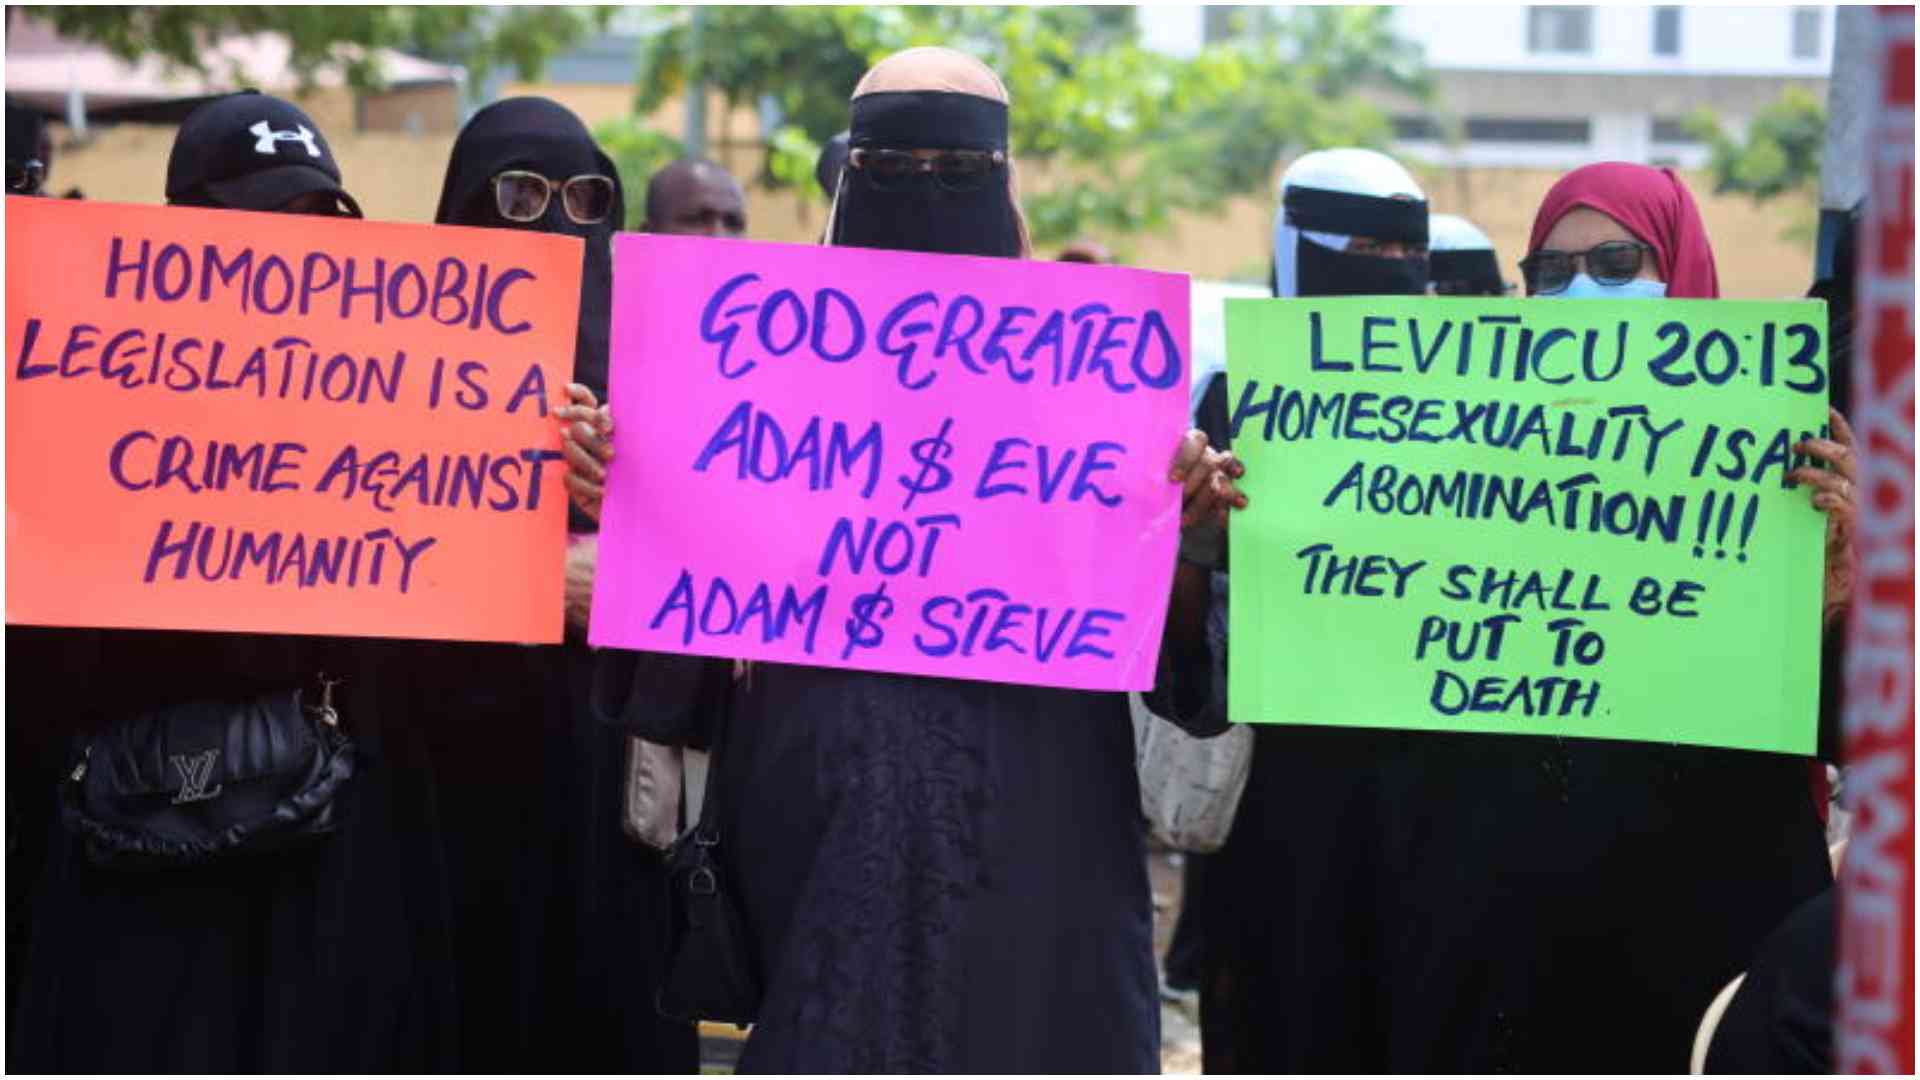 HOMOPHOBIC
LEGISLATION IS A
CRIME AGAINST
HUMANITY
GOD GREATED
ADAM $ EVE
NOT
ADAM $ STEVE
LEVITICU 20:13
HOMESEXUALITY IS AN
ABOMINATION!!!
THEY SHALL BE
PUT TO
DEATH.